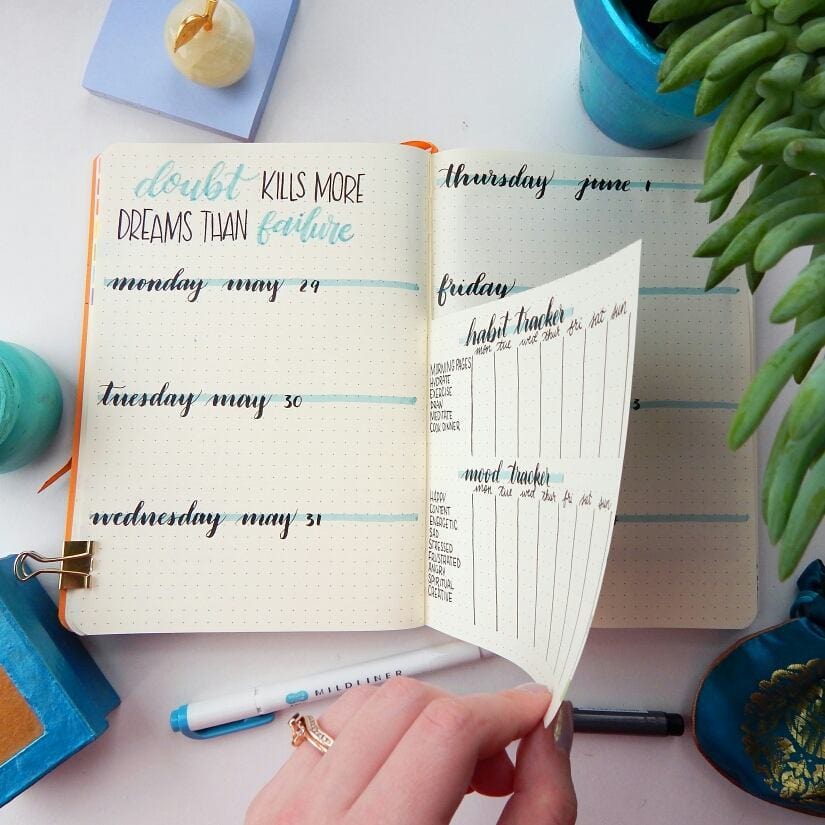 doubt KILLS MORE
DREAMS THAN failure
monday may 29
tuesday may 30
wednesday may 31
thursday june 1
friday
3
habit tracker
mon tue wed thur fri sat sun
MORNING PAGES
HYDRATE
EXERCISE
DRAW
MEDITATE
COOK DINNER
mood tracker
mon tue wed thur fri sat sun
HAPPY
CONTENT
ENERGETIC
SAD
STRESSED
FRUSTRATED
ANGRY
SPIRITUAL
CREATIVE
MILDLINER